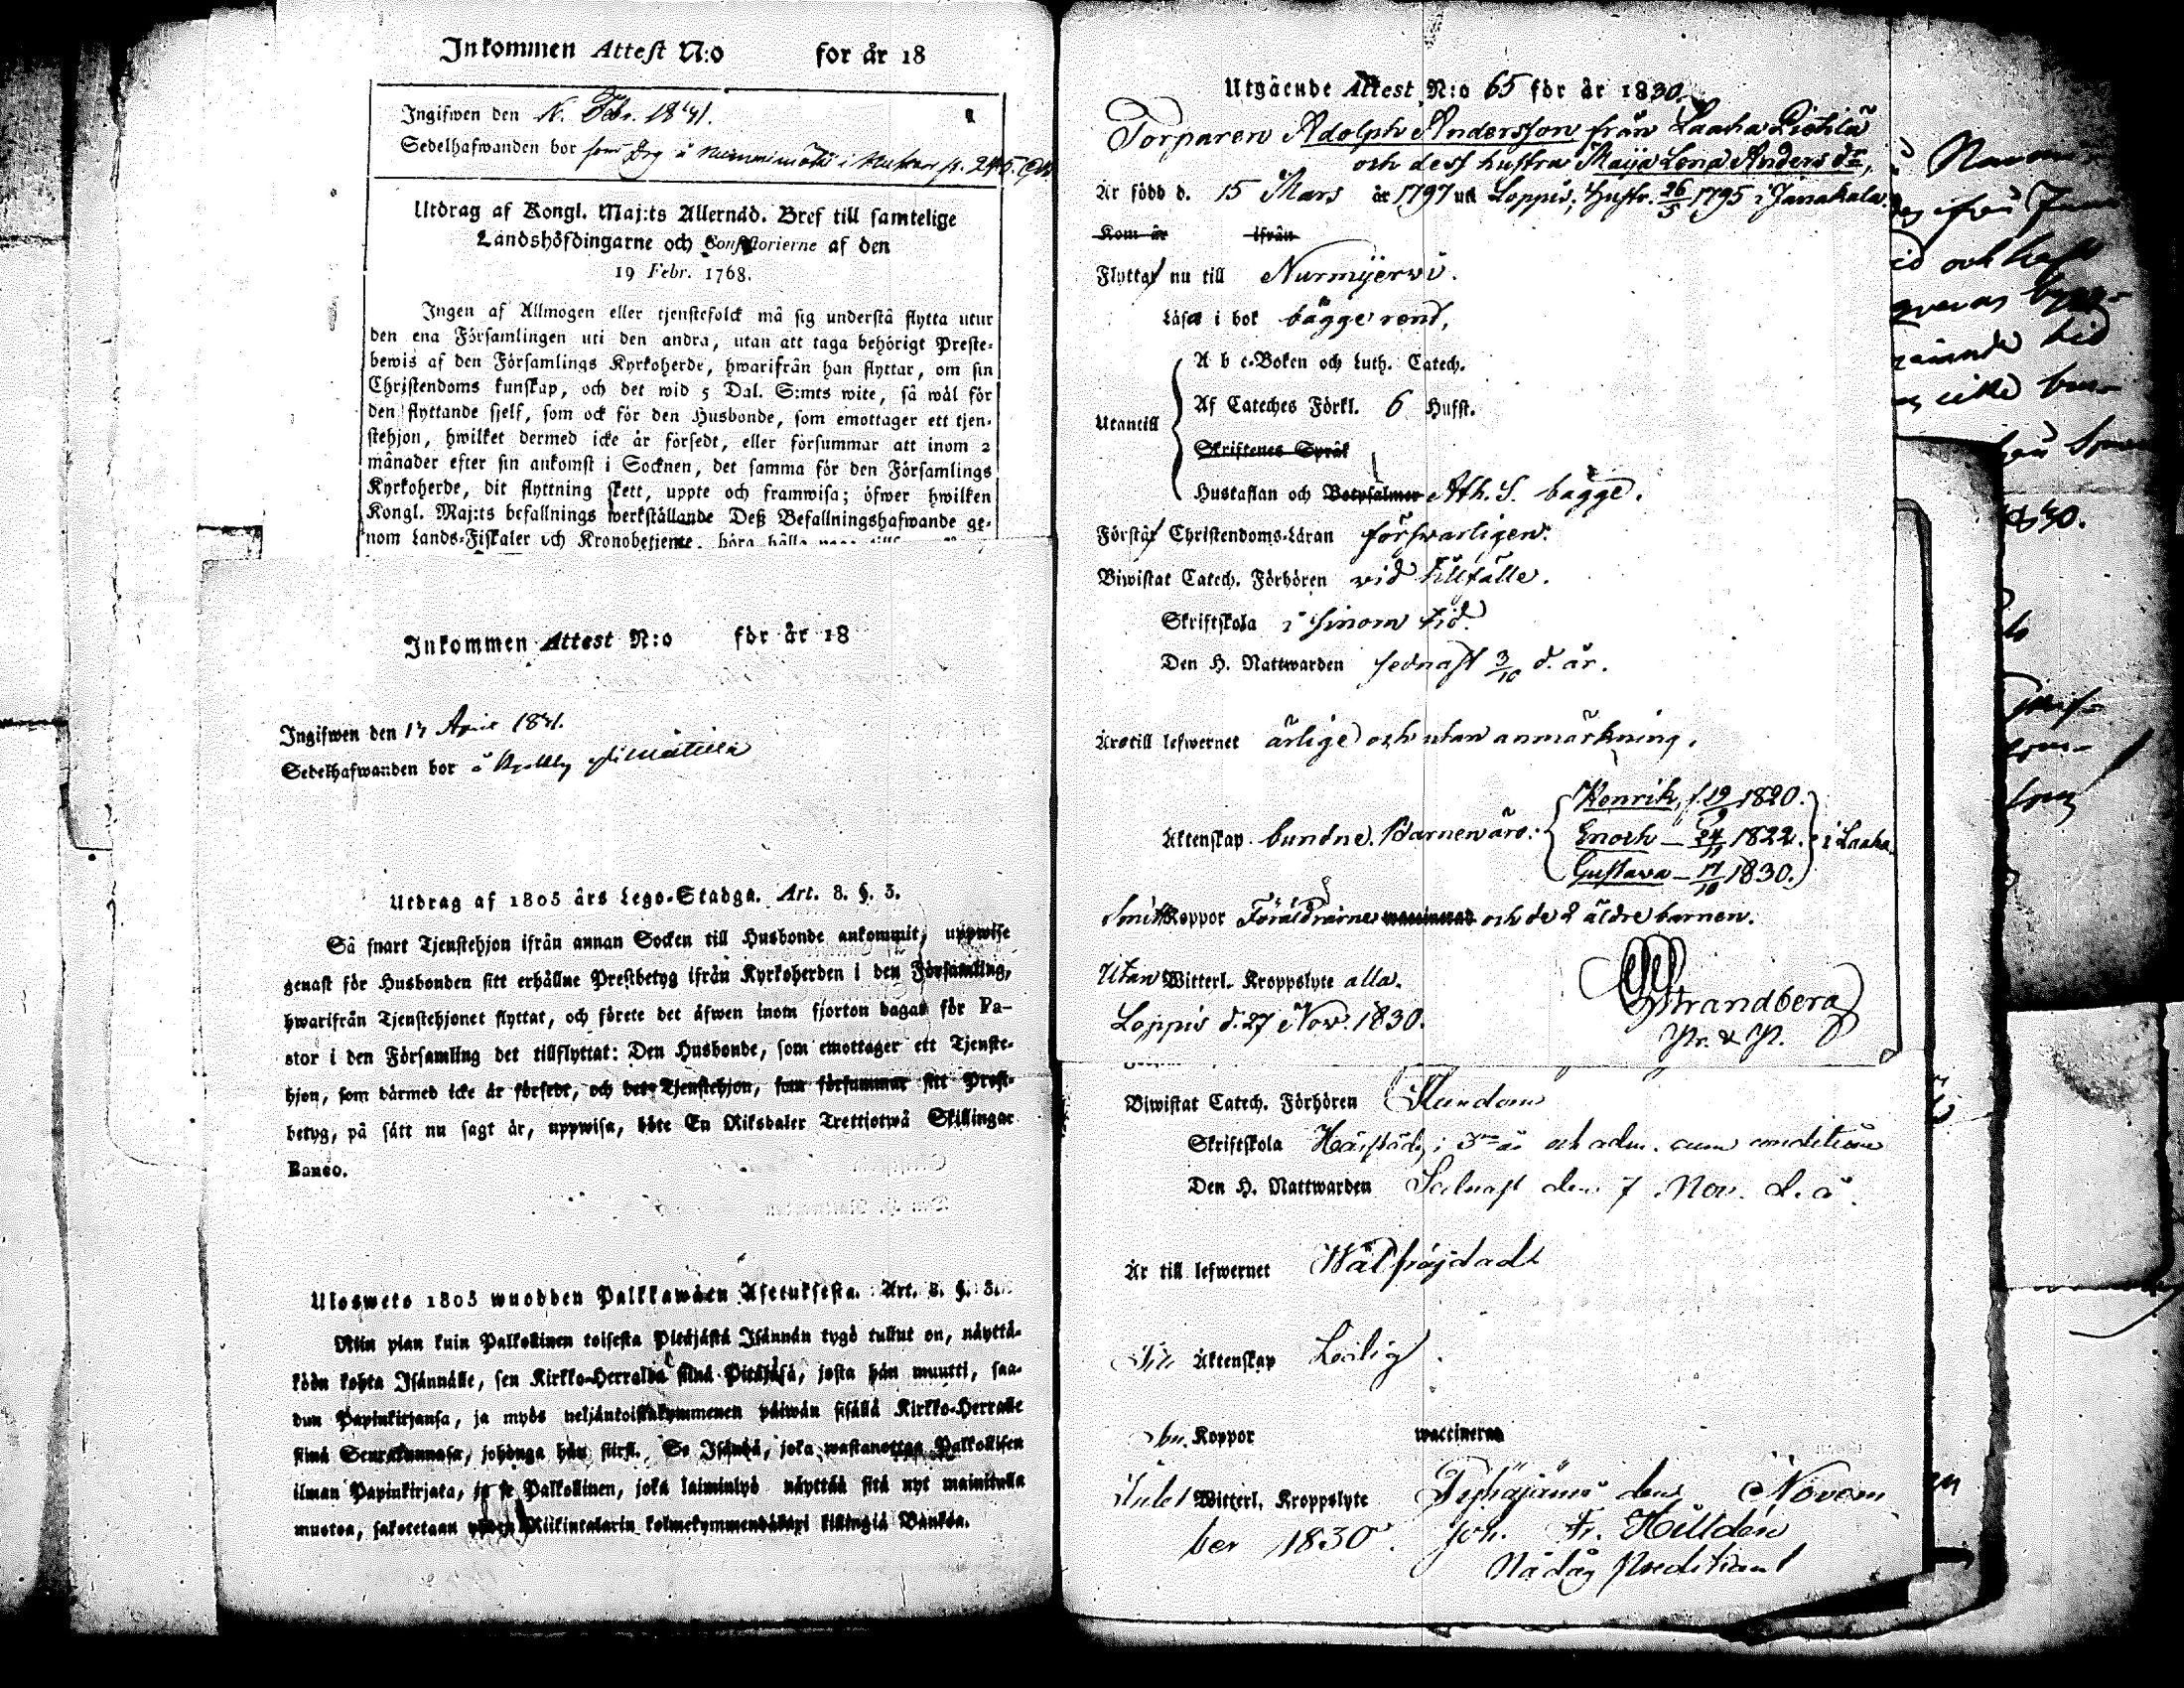 Inkommen Attest N:o for år 18
Ingifwen den Febr. 1841.
Sedelhafwanden bor som
Utdrag af Kongl. Maj:ts Allernåd. Bref till samtelige
Landshöfdingarne och Consistorierne af den
19 Febr. 1768.
Ingen af Allmogen eller tjenstefolck må sig understå flytta utur
den ena Församlingen uti den andra, utan att taga behörigt Preste-
bewis af den Församlings Kyrkoherde, hwarifrån han flyttar, om sin
Christendoms kunskap, och det wid 5 Dal. S:mts wite, så wäl för
den flyttande sjelf, som ock för den Husbonde, som emottager ett tjen-
stehjon, hwilket dermed icke är försedt, eller försummar att inom 2
månader efter sin ankomst i Socknen, det samma för den Församlings
Kyrkoherde, dit flyttning skett, uppte och framwisa; öfwer hwilken
Kongl. Maj:ts befallnings werkställande Deß Befallningshafwande ge-
nom Lands-Fiskaler och Kronobetjente, böra hålla
Inkommen Attest N:o för år 18
Ingifwen den 17 April 1831.
Sedelhafwanden bor å
Utdrag af 1805 års Lego-Stadga. Art. 8. §. 3.
Så snart Tjenstehjon ifrån annan Socken till Husbonde ankommit, uppwise
genast för Husbonden sitt erhållne Prestbetyg ifrån Kyrkoherden i den Församling,
hwarifrån Tjenstehjonet flyttat, och förete det äfwen inom fjorton dagar för Pa-
stor i den Församling det tillflyttat: Den Husbonde, som emottager ett Tjenste-
hjon, som därmed icke är försedt, och det Tjenstehjon, som försummar sitt Prest-
betyg, på sätt nu sagt är, uppwisa, böte En Riksdaler Trettiotwå Skillingar
Banco.
Ulosweto 1805 wuodden Palkkawäen Asetuksesta. Art. 8. §. 3.
Niin pian kuin Palkollinen toisesta Pitäjästä Isännän tygö tullut on, näyttä-
köön kohta Isännälle, sen Kirkko-Herralda siinä Pitäjäsä, josta hän muutti, saa-
dun Papinkirjansa, ja myös neljäntoistakymmenen päiwän sisällä Kirkko-Herralle
siinä Seurakunnasa, johonga hän siirsi. Se Isändä, joka wastanottaa Palkollisen
ilman Papinkirjata, ja se Palkollinen, joka laiminlyö näyttää sitä nyt mainitulla
muotoa, sakotetaan Riikintalarin kolmekymmendäkaxi killingiä Bankoa.
Utgående Attest N:o 65 för år 1830.
Torparen Adolph Andersson från Laaha Pietilä
och dess hustru Maija Lena Andersdr,
Är född d. 15 Mars år 1797 uti Loppis; hustr. 26/5 1795 i Janakala.
Kom år ifrån
Flyttar nu till Nurmijerwi.
Läsa i bok bägge rent,
Utantill
A b c-Boken och Luth. Catech.
Af Cateches Förkl. 6 Hufst.
Skriftenes Språk
Hustaflan och Botpsalmer Ath. S. bägge.
Förstår Christendoms-Läran förswarligen.
Biwistat Catech. Förhören vid tillfälle.
Skriftskola i sinom tid.
Den H. Nattwarden sednast 3/10 d. år.
Äro till lefwernet ärlige och utan anmärkning.
Äktenskap bundne. Barnen äro:
Henrik, f. 19/9 1820.
Enoch — 24/11 1822. i Laaha.
Gustava — 17/10 1830.
Smittkoppor Föräldrarne waccinerad och de 2 äldre barnen.
Utan Witterl. Kroppslyte alla.
Loppis d. 27 Nov. 1830.
Strandberg
Biwistat Catech. Förhören Stundom
Skriftskola i 3ne år och adm. cum conditione
Den H. Nattwarden Sednast den 7 Nov. d. å.
Är till lefwernet Wälfräjdadt
Till Äktenskap Ledig.
Koppor waccinerad
Witterl. Kroppslyte Pyhäjärvi den Novem
ber 1830. Joh. Fr. Hilldén